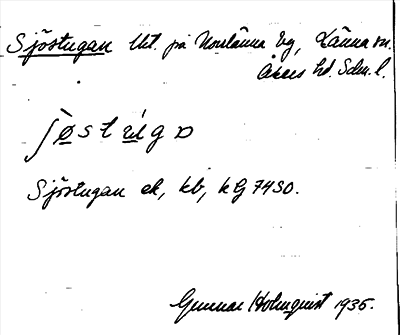 Sjöstugan Utt. på Norrlänna äg, Länna sn.
Åkers hd. Sdm. l.
Sjöstugan ek, kb, kG 74SO.
Gunnar Holmquist 1935.